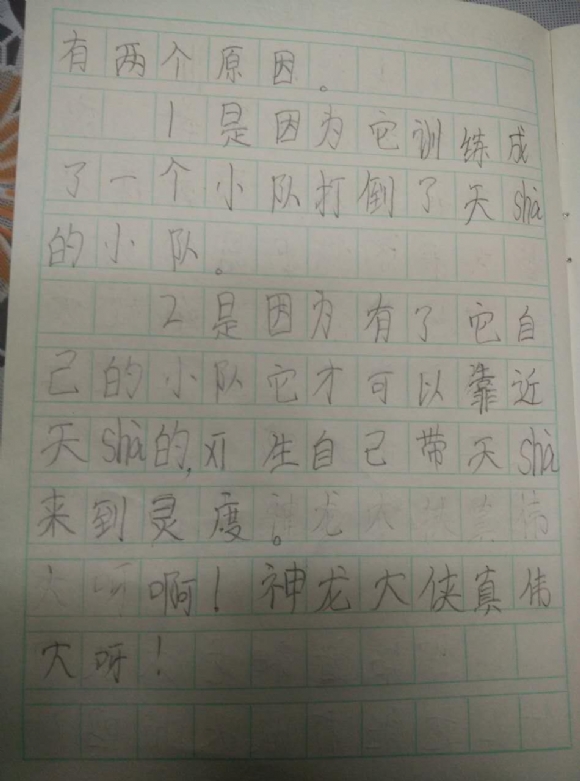 有两个原因。
1是因为它训练成
了一个小队打倒了天shà
的小队。
2是因为有了它自
己的小队它才可以靠近
天shà的,牺生自己带天shà
来到灵度。神龙大侠真伟
大呀啊!神龙大侠真伟
大呀!